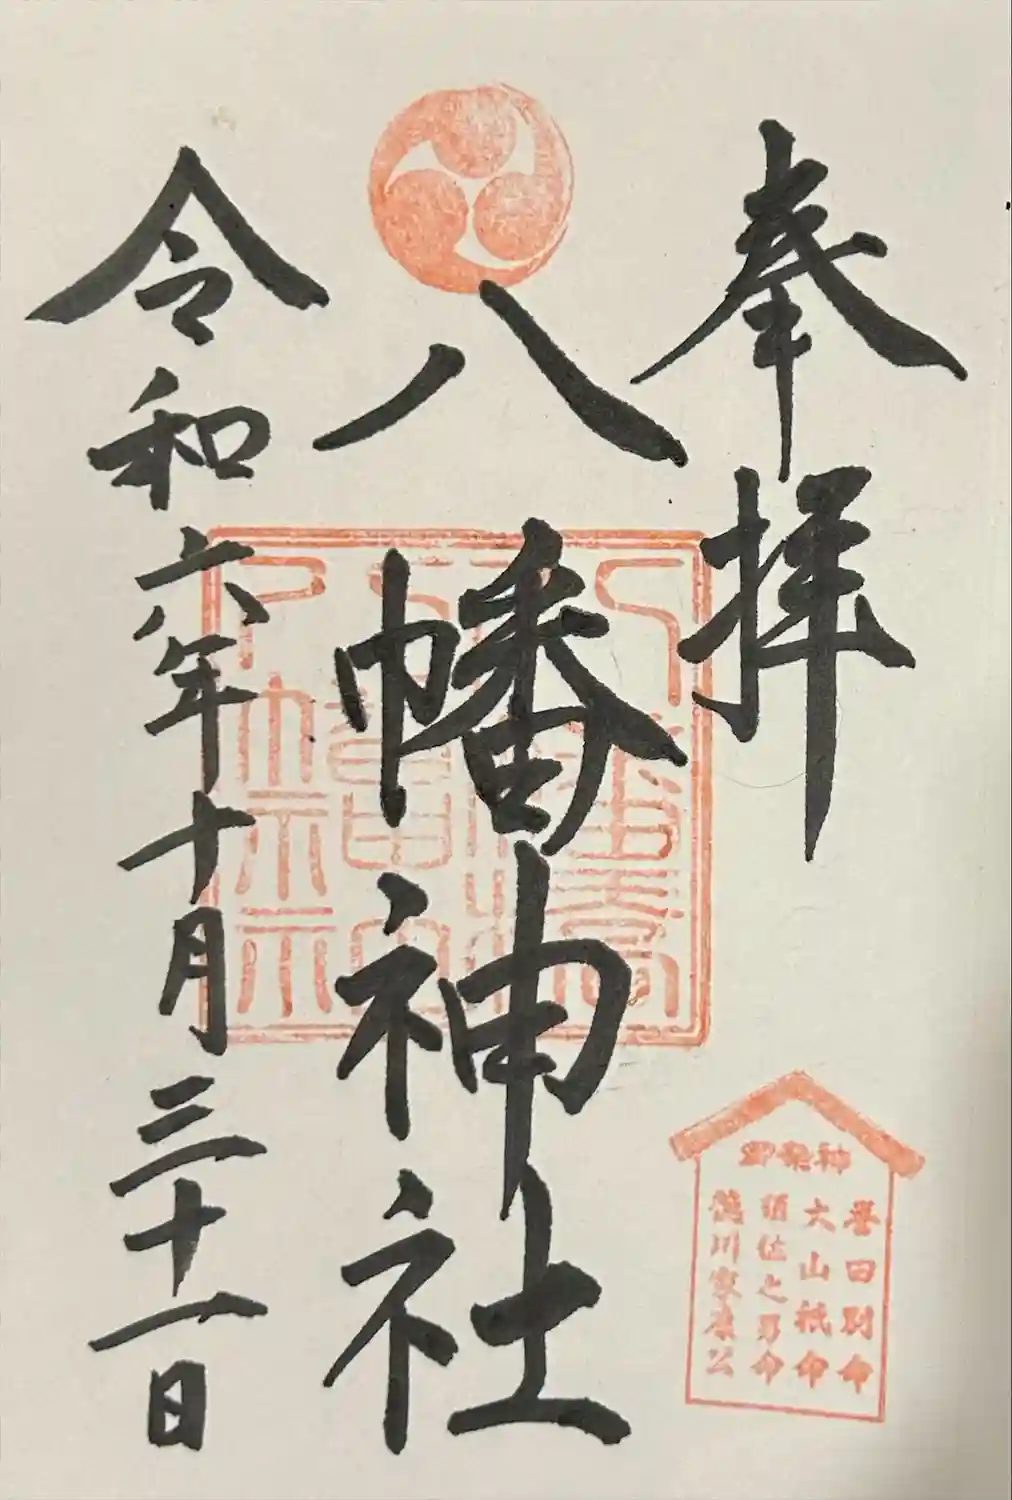 奉拝
八幡神社
令和六年十月三十一日
御祭神
誉田別命
大山祇命
須佐之男命
徳川家康公